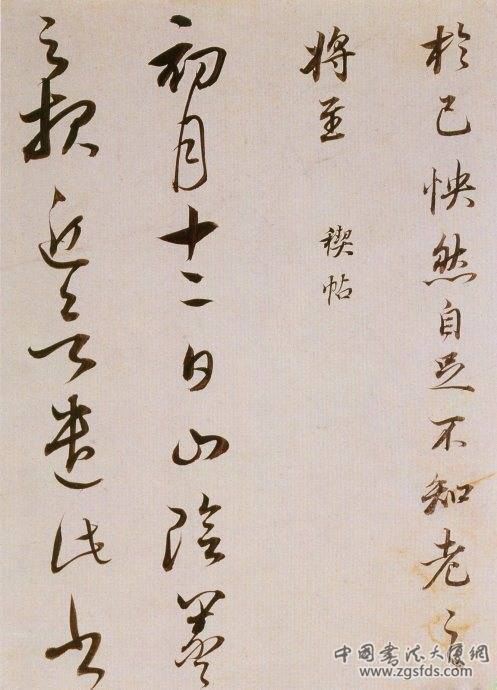 於己怏然自足不知老之
将至
禊帖
初月十二日山陰羲
之報近欲遣此書
中國書法大廈網
www.zgsfds.com